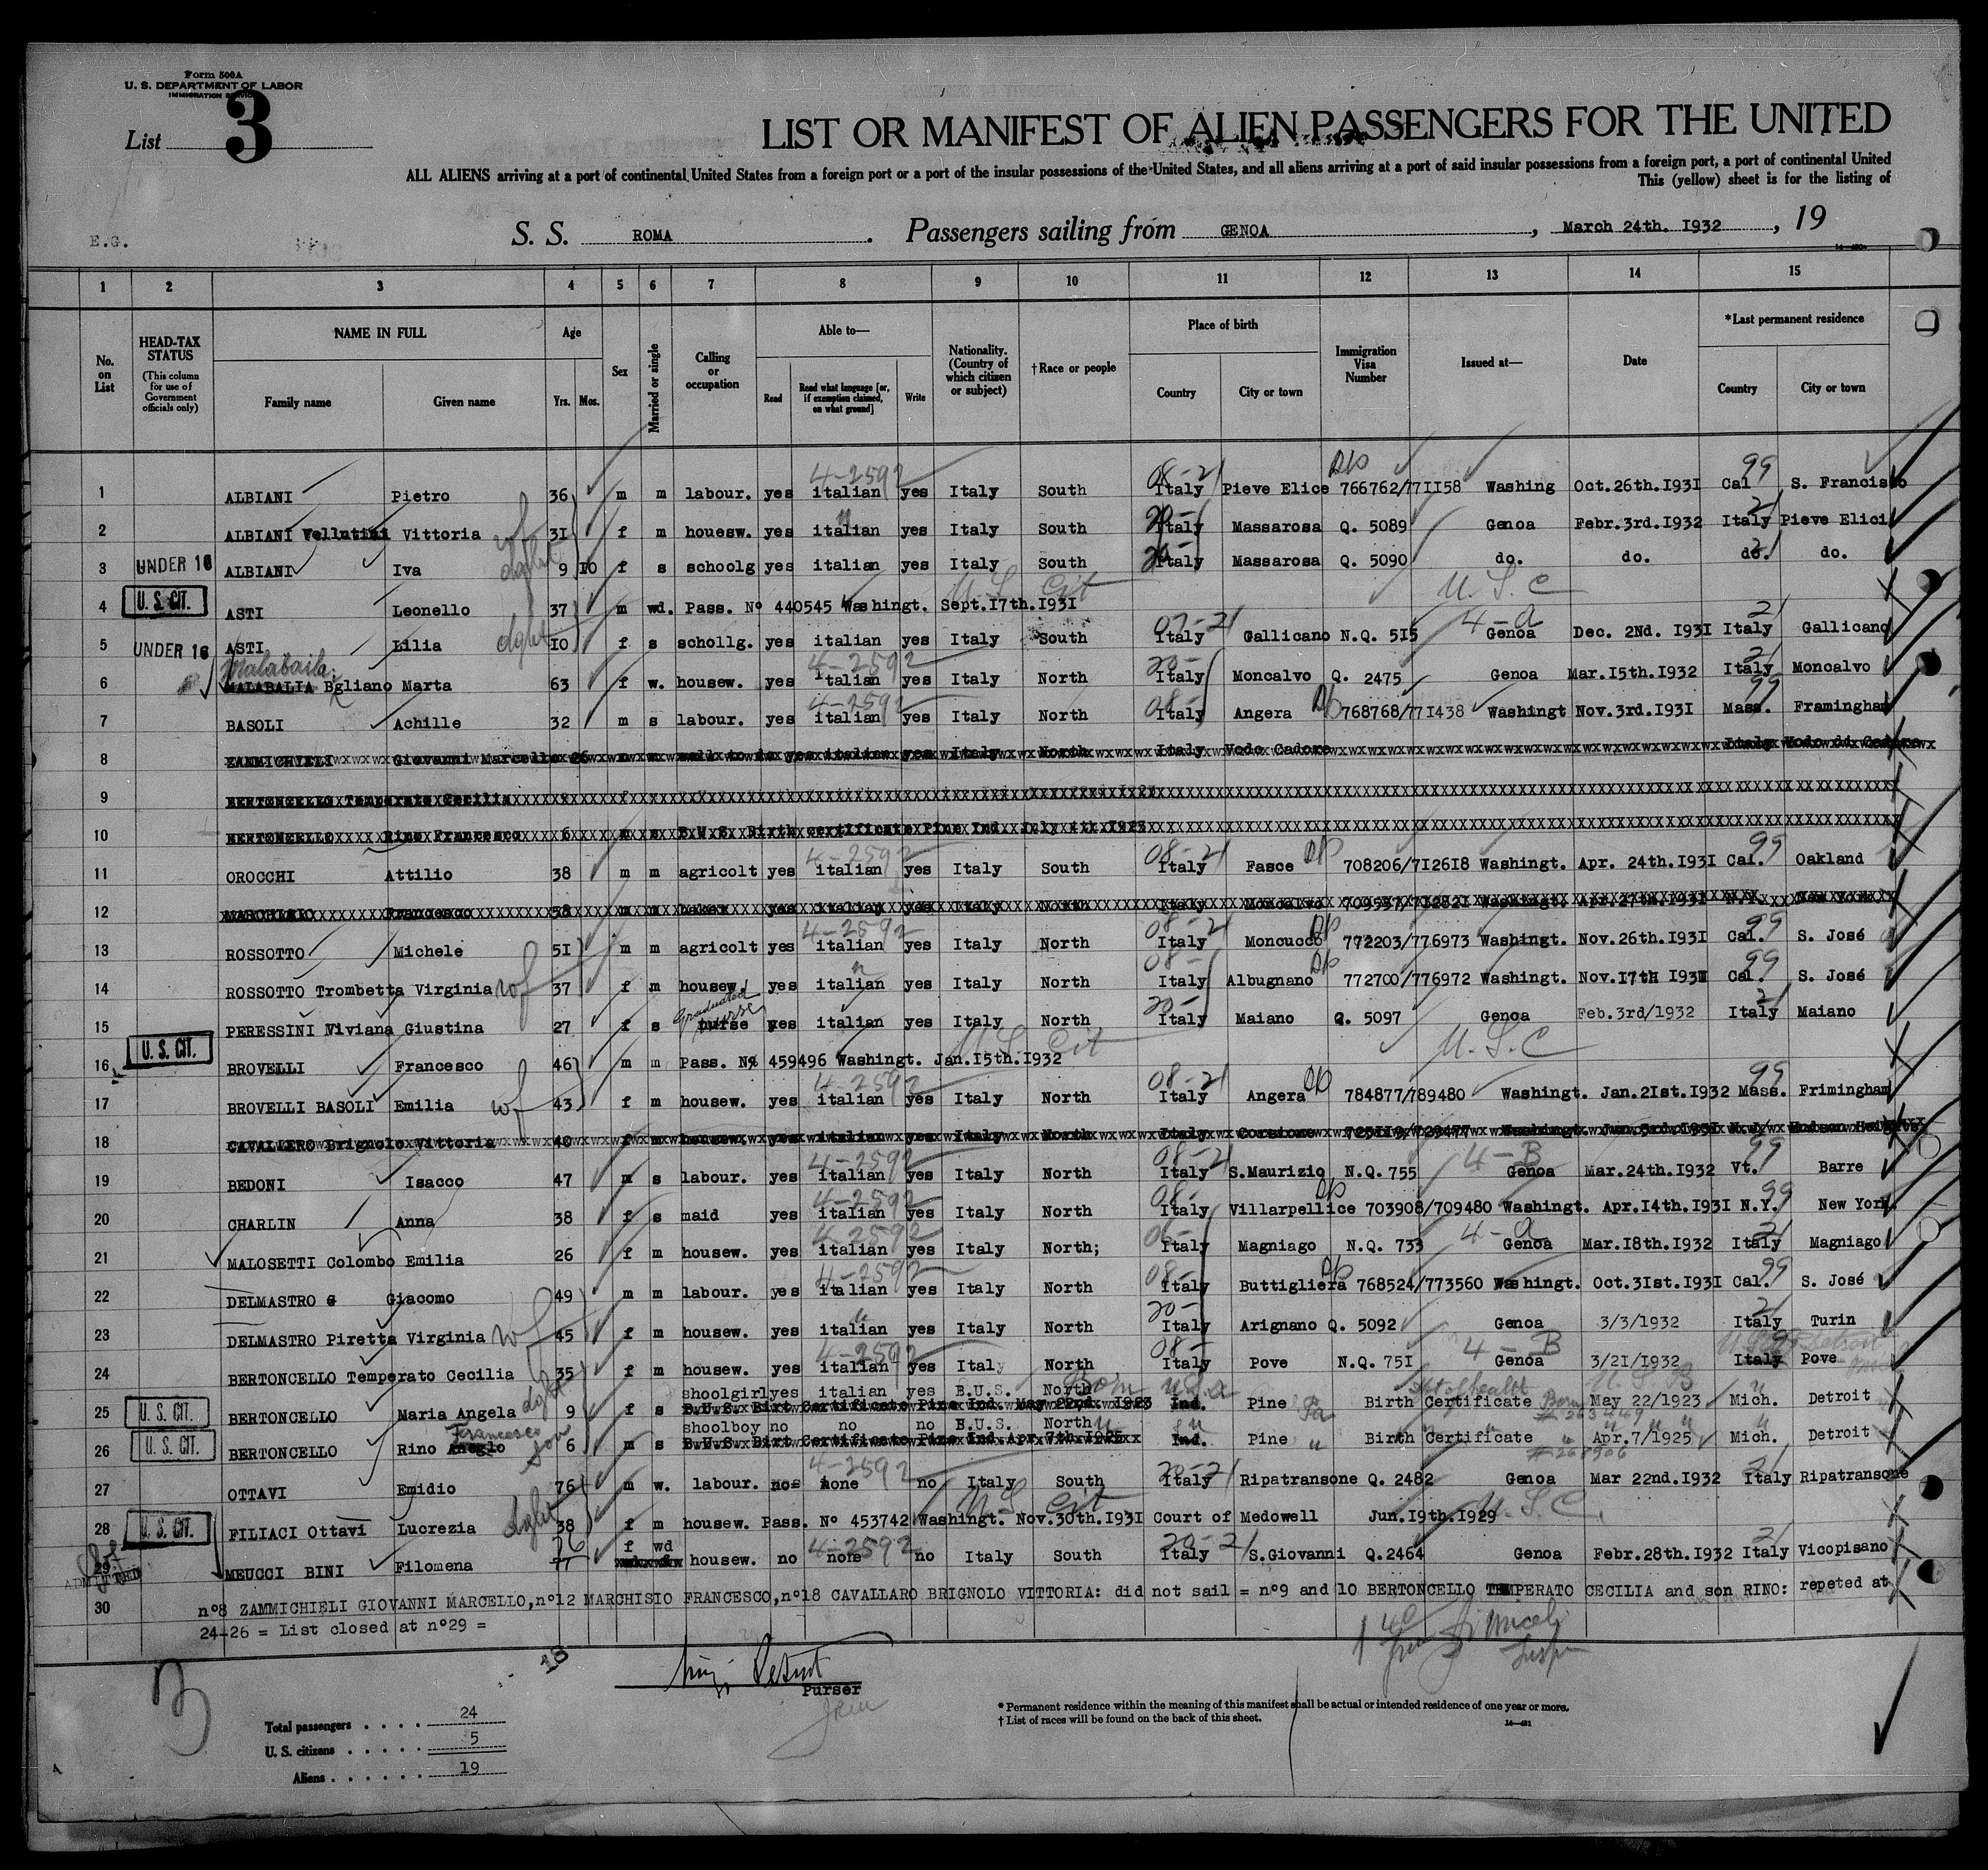 Form 500A
U. S. DEPARTMENT OF LABOR
IMMIGRATION SERVICE
List 3
LIST OR MANIFEST OF ALIEN PASSENGERS FOR THE UNITED
ALL ALIENS arriving at a port of continental United States from a foreign port or a port of the insular possessions of the United States, and all aliens arriving at a port of said insular possessions from a foreign port, a port of continental United
This (yellow) sheet is for the listing of
E.G.
S. S. ROMA. Passengers sailing from GENOA, March 24th. I932, 19
1 2 3 4 5 6 7 8 9 10 11 12 13 14 15
No. on List
HEAD-TAX STATUS (This column for use of Government officials only)
NAME IN FULL Family name Given name
Age Yrs. Mos.
Sex
Married or single
Calling or occupation
Able to— Read Read what language [or, if exemption claimed, on what ground] Write
Nationality. (Country of which citizen or subject)
†Race or people
Place of birth Country City or town
Immigration Visa Number
Issued at—
Date
*Last permanent residence Country City or town
1 ALBIANI Pietro 36 m m labour. yes italian yes Italy South Italy Pieve Elice 766762/77II58 Washing Oct.26th.I93I Cal S. Francisco 4-2592 08-21 D/P 99
2 ALBIANI Vellutini Vittoria wf 3I f m houesw. yes italian yes Italy South Italy Massarosa Q. 5089 Genoa Febr.3rd.I932 Italy Pieve Elici 20- 21
3 UNDER 16 ALBIANI Iva dght 9 IO f s schoolg yes italian yes Italy South Italy Massarosa Q. 5090 do. do. do. do. 20- 21
4 U. S. CIT. ASTI Leonello 37 m wd. Pass. Nº 440545 Washingt. Sept.I7th.I93I U.S. Cit U.S.C
5 UNDER 16 ASTI Lilia dght IO f s schollg. yes italian yes Italy South Italy Gallicano N.Q. 5I5 Genoa Dec. 2Nd. I93I Italy Gallicano 07-21 4-a 21
6 Malabaila MALABALIA Bgliano Marta 63 f w. housew. yes italian yes Italy North Italy Moncalvo Q. 2475 Genoa Mar.I5th.I932 Italy Moncalvo 4-2592 20- 21
7 BASOLI Achille 32 m s labour. yes italian yes Italy North Italy Angera D/P 768768/77I438 Washingt Nov.3rd.I93I Mass. Framingham 4-2592 08- 99
8 ZAMMICHIELI Giovanni Marcello 26 m m well to do yes italian yes Italy North Italy Vodo Cadore Italy Vodo di Cadore
9 BERTONCELLO Temperato Cecilia f
10 BERTONCELLO Rino Francesco 6 m s B.U.S. Birth certificate Pine Ind. July 4th.I925
11 OROCCHI Attilio 38 m m agricolt yes italian yes Italy South Italy Fasce D/P 708206/7I26I8 Washingt. Apr. 24th.I93I Cal. Oakland 4-2592 08-21 99
12 MARCHISIO Francesco 58 m m baker yes italian yes Italy North Italy Moncalvo Washingt. Apr.27th.I93I N.Y. New York
13 ROSSOTTO Michele 5I m m agricolt yes italian yes Italy North Italy Moncucco D/P 772203/776973 Washingt. Nov.26th.I93I Cal. S. José 4-2592 08-21 99
14 ROSSOTTO Trombetta Virginia wf 37 f m housew. yes italian yes Italy North Italy Albugnano D/P 772700/776972 Washingt. Nov.I7tH I93I Cal. S. José 08- 99
15 PERESSINI Viviana Giustina 27 f s Graduated nurse nurse yes italian yes Italy North Italy Maiano Q. 5097 Genoa Feb.3rd/1932 Italy Maiano 20- 21
16 U. S. CIT. BROVELLI Francesco 46 m m Pass. Nº 459496 Washingt. Jan.I5th.I932 U.S. Cit U.S.C
17 BROVELLI BASOLI Emilia wf 43 f m housew. yes italian yes Italy North Italy Angera D/P 784877/789480 Washingt. Jan.2Ist.I932 Mass. Frimingham 4-2592 08-21 99
18 CAVALLERO Brignolo Vittoria 40 f m housew yes italian yes Italy North Italy Corsione Washingt. Jun.3rd.I93I N.J.
19 BEDONI Isacco 47 m s labour. yes italian yes Italy North Italy S.Maurizio N.Q. 755 Genoa Mar.24th.I932 Vt. Barre 4-2592 08-21 4-B 99
20 CHARLIN Anna 38 f s maid yes italian yes Italy North Italy Villarpellice D/P 703908/709480 Washingt. Apr.I4th.I93I N.Y. New York. 4-2592 08- 99
21 MALOSETTI Colombo Emilia 26 f m housew. yes italian yes Italy North; Italy Magniago N.Q. 733 Genoa Mar.I8th.I932 Italy Magniago 4-2592 4-a 21
22 DELMASTRO Giacomo 49 m m labour. yes italian yes Italy North Italy Buttigliera D/P 768524/773560 Washingt. Oct.3Ist.I93I Cal. S. José 4-2592 08- 99
23 DELMASTRO Piretta Virginia wf 45 f m housew. yes italian yes Italy North Italy Arignano Q. 5092 Genoa 3/3/1932 Italy Turin 20- 21
24 BERTONCELLO Temperato Cecilia 35 f m housew. yes italian yes Italy North Italy Pove N.Q. 75I Genoa 3/2I/1932 Italy Pove 4-2592 08- 4-B Detroit
25 U. S. CIT. BERTONCELLO Maria Angela dght 9 f s shoolgirl yes italian yes B.U.S. North Born U.S.A Ind. Pine Pa Birth Certificate May 22/1923 Mich. Detroit
B.U.S. Birt Certificate Pine Ind. May 22nd. I923
26 U. S. CIT. BERTONCELLO Rino Aneglo Francesco son 6 m s shoolboy no no no B.U.S. North Ind. Pine Birth Certificate Apr.7/1925 Mich. Detroit
B.U.S. Birt Certificate Pine Ind.Apr.7th.I925
27 OTTAVI Emidio 76 m w. labour. no none no Italy South Italy Ripatransone Q. 2482 Genoa Mar 22nd.I932 Italy Ripatransone 4-2592 20-21 21
28 U. S. CIT. FILIACI Ottavi Lucrezia dght 38 f m housew. Pass. Nº 453742 Washingt. Nov.30th.I93I Court of Medowell Jun.I9th.I929 U.S. Cit U.S.C.
29 ADMITTED MEUCCI BINI Filomena 76 77 f wd housew. no none no Italy South Italy S.Giovanni Q.2464 Genoa Febr.28th.I932 Italy Vicopisano 4-2592 20-21 21
30 nº8 ZAMMICHIELI GIOVANNI MARCELLO,nº12 MARCHISIO FRANCESCO,nº18 CAVALLARO BRIGNOLO VITTORIA: did not sail = nº9 and 10 BERTONCELLO TEMPERATO CECILIA and son RINO: repeted at
24-26 = List closed at nº29 =
3
Purser
Total passengers . . . . 24
U. S. citizens . . . . . 5
Aliens . . . . . . 19
* Permanent residence within the meaning of this manifest shall be actual or intended residence of one year or more.
† List of races will be found on the back of this sheet.